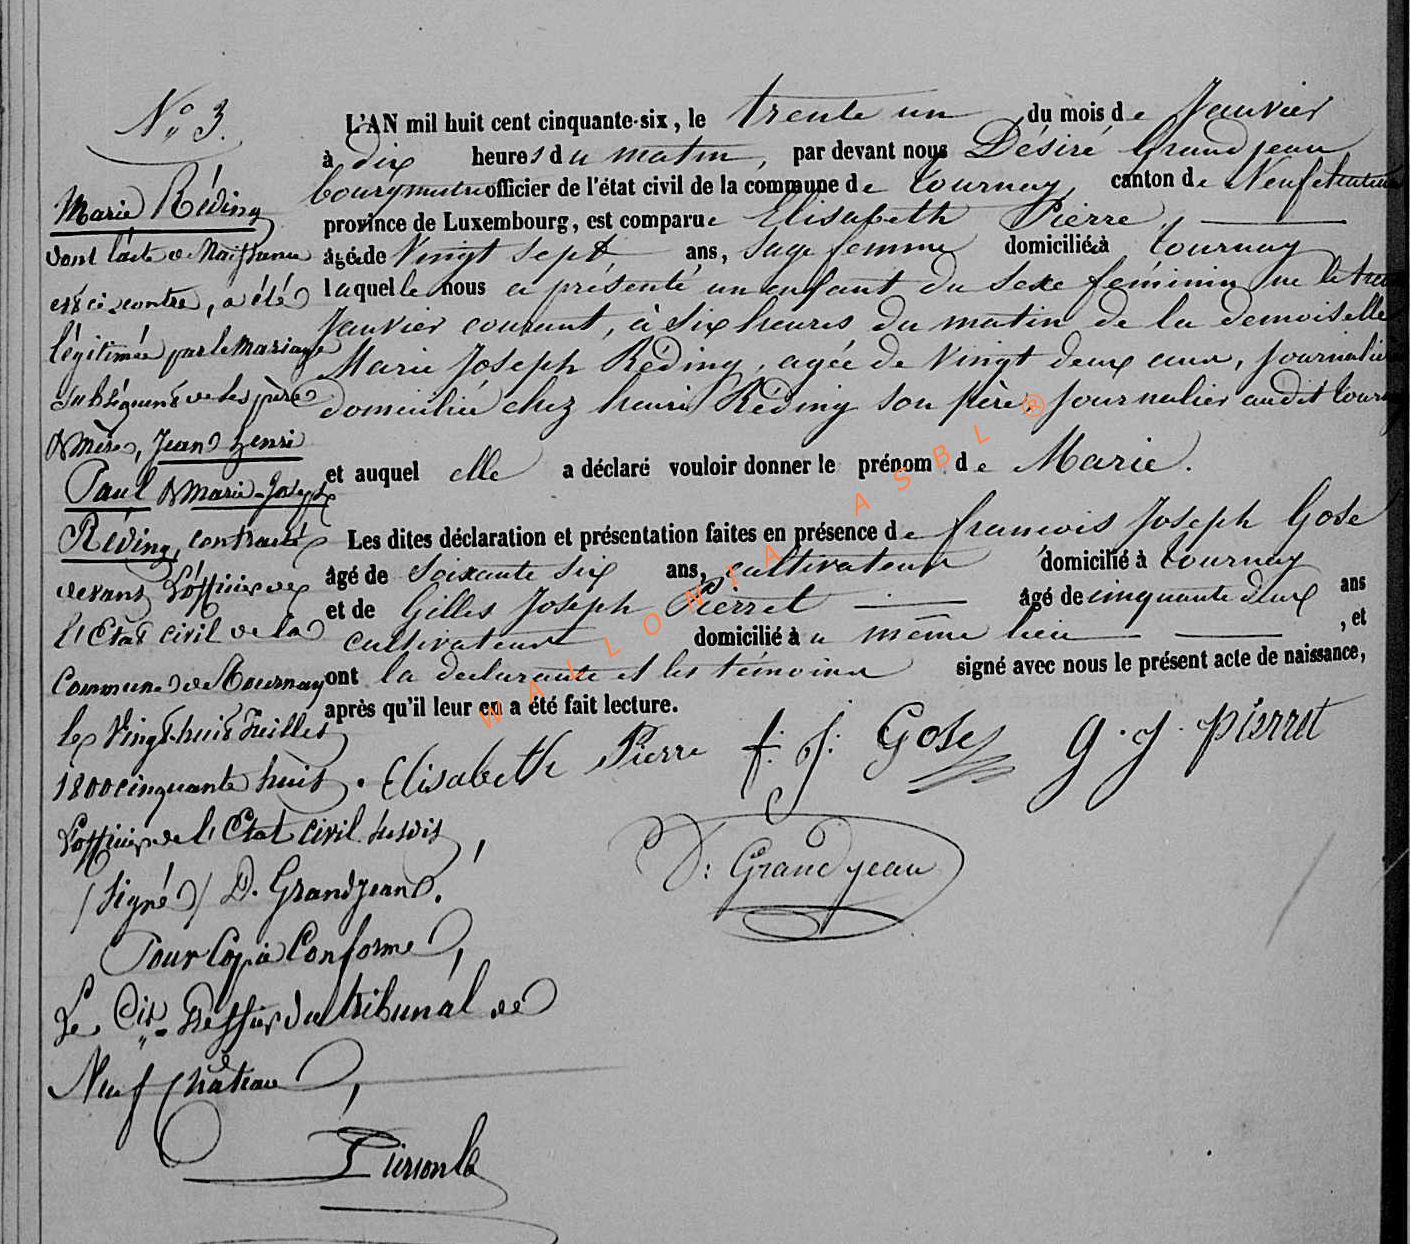 N° 3.
Marie Réding
dont l'acte de Naissance
est ci contre, a été
légitimée par le Mariage
subséquent de ses père
& mère, Jean henri
Paul & Marie-Joseph
Réding, contracté
devant l'officier de
l'Etat civil de la
Commune de Tournay
le Vingt-huit Juillet
1800 cinquante huit.
L'officier de l'Etat civil susdit,
(signé) D. Grandjean.
Pour Copie Conforme,
Le Greffier du tribunal de
Neufchâteau,
L'AN mil huit cent cinquante-six, le trente un du mois de Janvier
à dix heures du matin, par devant nous Désiré Grandjean
bourgmestre officier de l'état civil de la commune de Tournay, canton de Neufchateau
province de Luxembourg, est comparue Elisabeth Pierre,
âgée de Vingt sept ans, sage femme domiciliée à Tournay
laquelle nous a présenté un enfant du sexe féminin né le trente
Janvier courant, à six heures du matin de la demoiselle
Marie Joseph Réding, agée de Vingt deux ans, journalière
domiciliée chez henri Réding son père, journalier audit Tournay
et auquel elle a déclaré vouloir donner le prénom de Marie.
Les dites déclaration et présentation faites en présence de francois Joseph Gose
âgé de soixante six ans, cultivateur domicilié à Tournay
et de Gilles Joseph Pierret âgé de cinquante deux ans
cultivateur domicilié à u même lieu , et
ont la déclarante et les témoins signé avec nous le présent acte de naissance,
après qu'il leur en a été fait lecture.
Elisabeth Pierre f: J: Gose g. J. pierret
D: Grandjean
WALLONIA ASBL ®